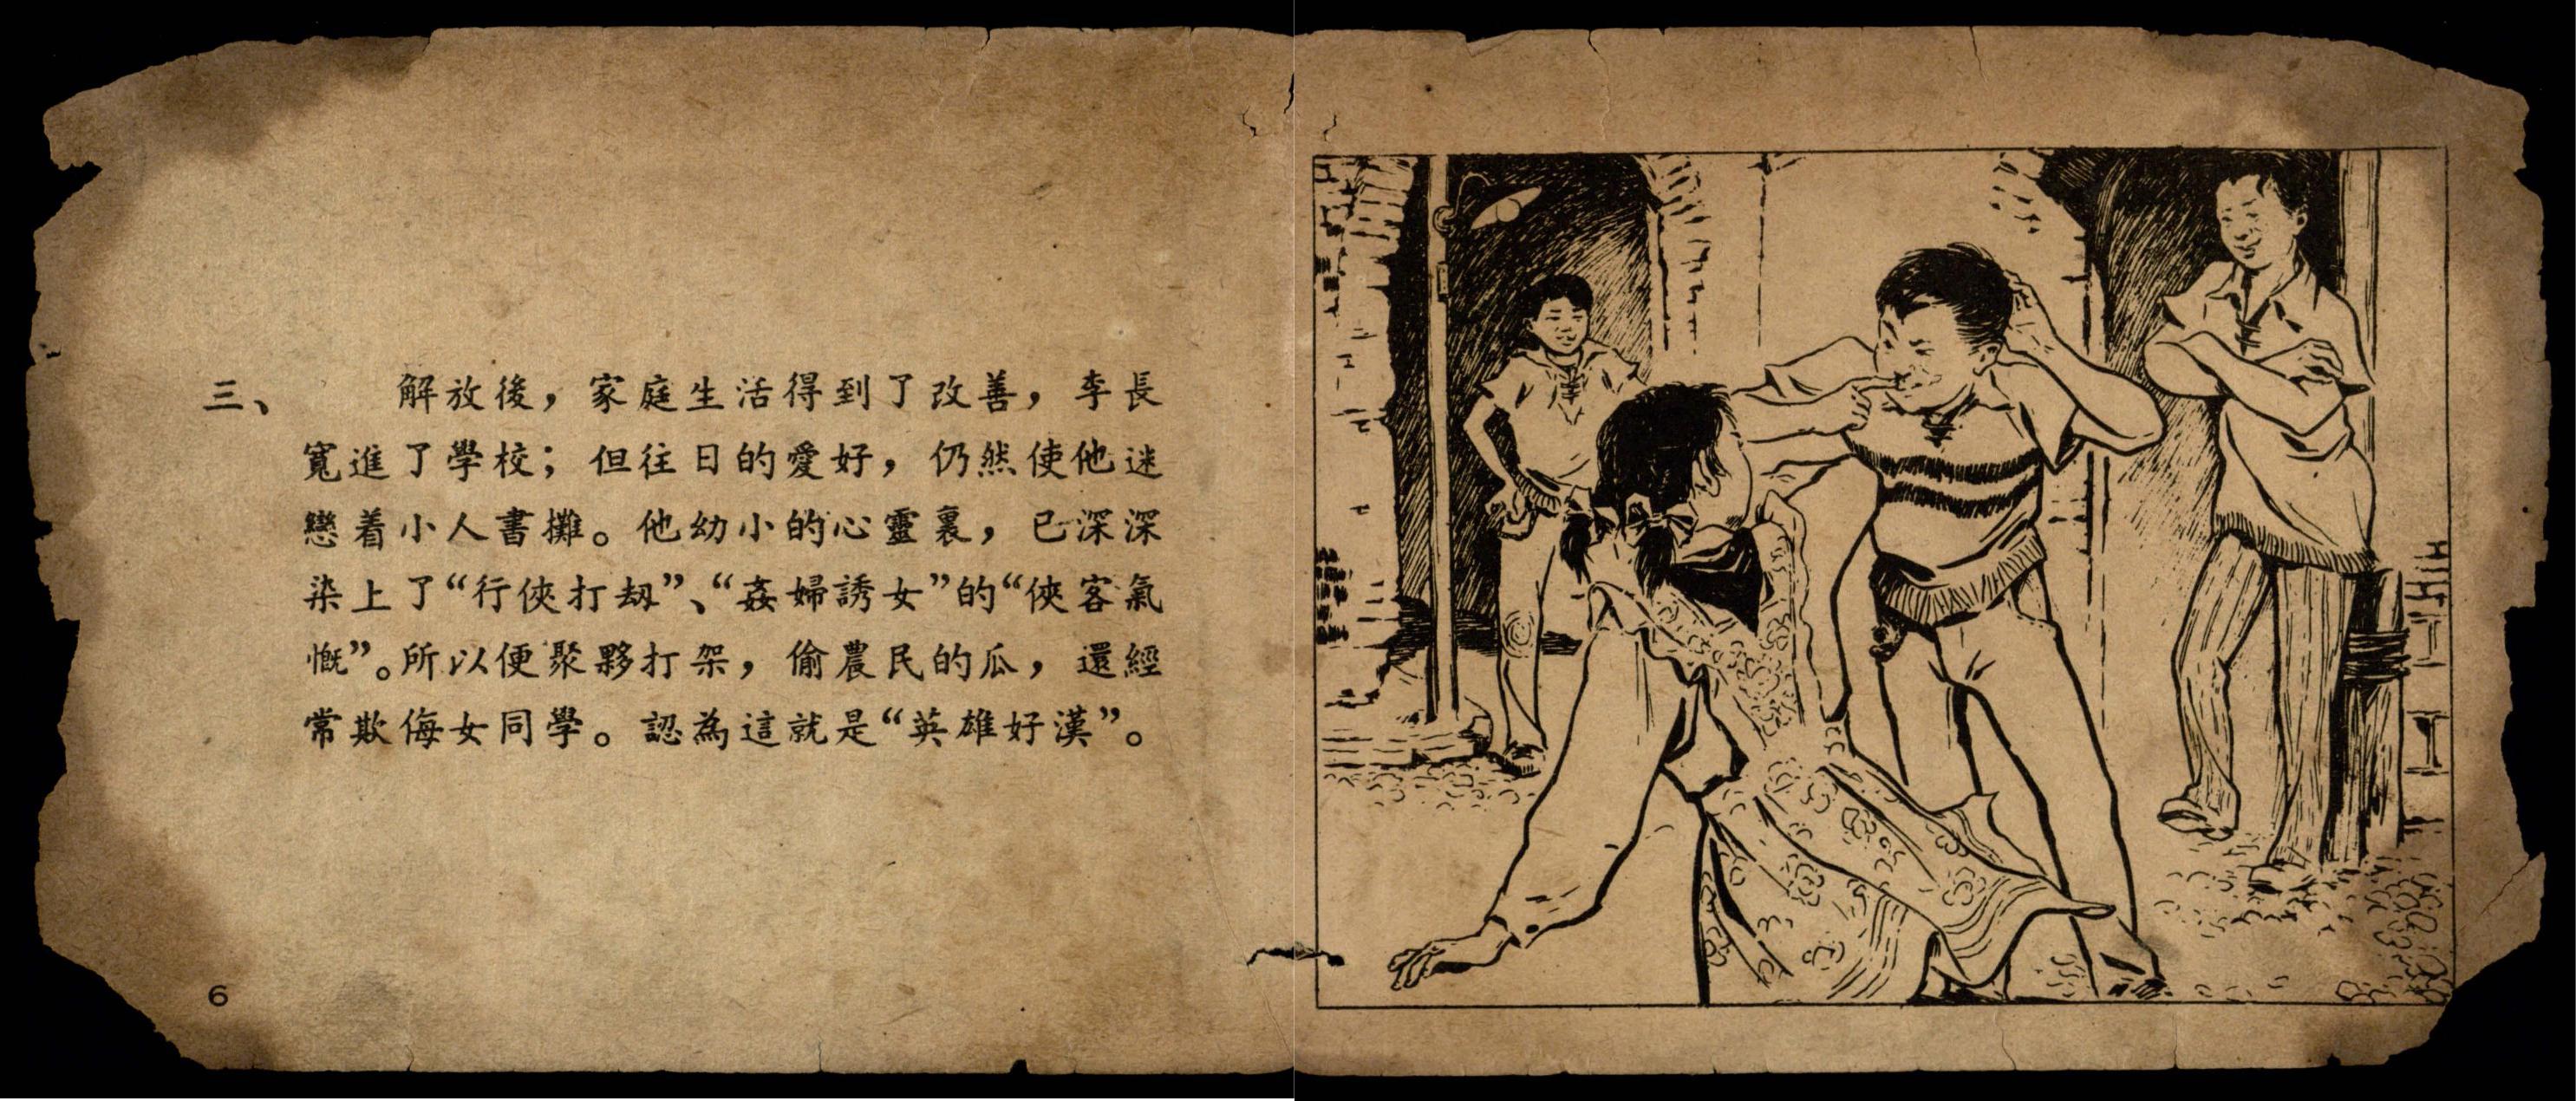 三、　　解放後，家庭生活得到了改善，李長
寬進了學校；但往日的愛好，仍然使他迷
戀着小人書攤。他幼小的心靈裏，已深深
染上了“行俠打刼”、“姦婦誘女”的“俠客氣
慨”。所以便聚夥打架，偷農民的瓜，還經
常欺侮女同學。認為這就是“英雄好漢”。
6